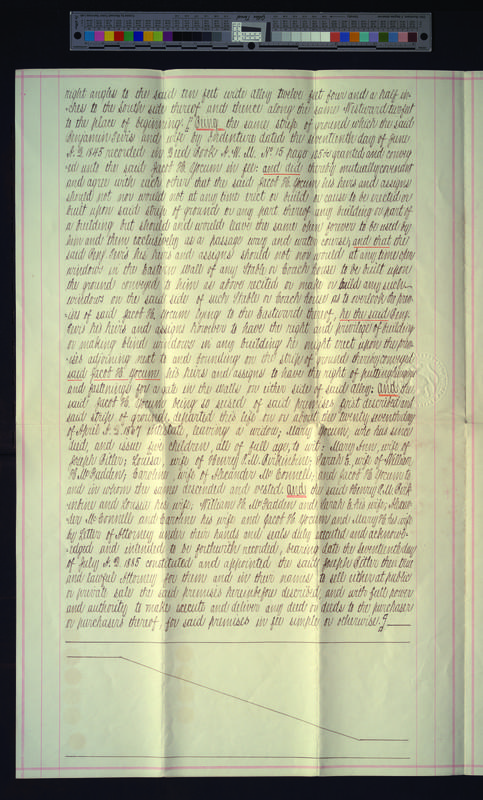 right angles to the said ten feet wide alley twelve feet four and a half in-
-ches to the South side thereof and thence along the same Westward two feet
to the place of beginning. Being the same strip of ground which the said
Benjamin and wife by Indenture dated the seventeenth day of June
A.D. 1845 recorded in Deed Book A.W.M. No. 15 page granted and convey
ed unto the said Jacob H. Yocum in fee: and did thereby mutually covenant
and agree with each other that the said Jacob H. Yocum his heirs and assigns
should not nor would not at any time erect or build or cause to be erected or
built upon said strip of ground or any part thereof any building or part of
a building but should and would leave the same open forever to be used by
him and them exclusively as a passage way and water course, and that the
said Benj. his heirs and assigns should not nor would at any time open
windows in the Eastern Wall of any Stable or Coach house to be built upon
the ground conveyed to him as above recited or make or build any such
windows on the said side of such Stable or Coach house as to overlook the prem-
-ises of said Jacob H. Yocum lying to the Eastward thereof, he the said Benj.
his heirs and assigns however to have the right and privilege of building
or making blind windows in any building he might erect upon the prem-
-ises adjoining next to and bounding on the strip of ground thereby conveyed
said Jacob H. Yocum his heirs and assigns to have the right of putting hinges
and fastenings for a gate in the walls on either side of said alley: and the
said Jacob H. Yocum being so seized of said premises first described and
said strip of ground departed this life on or about the twenty seventh day
of April A.D. 1867 intestate, leaving a widow, Mary Yocum, who has since
died, and issue five children, all of full age, to wit: Mary Ann, wife of
Joseph Ritter; Louisa, wife of Henry P.M. Birkinbine; Sarah E. wife of William
H. McFadden; Caroline wife of Alexander McConnell; and Jacob H. Yocum to
and in whom the same descended and vested and the said Henry P.M. Birk-
inbine and Louisa his wife; William H. McFadden and Sarah E. his wife; Alexan-
der McConnell and Caroline his wife and Jacob H. Yocum and Mary H. his wife
by Letter of Attorney under their hands and seals duly executed and acknowl-
-edged and intended to be forthwith recorded, bearing date the seventeenth day
of July A.D. constituted and appointed the said Joseph Ritter their true
and lawful Attorney for them and in their names to sell either at public
or private sale the said premises hereinbefore described, and with full power
and authority to make execute and deliver any deed or deeds to the purchaser
or purchasers thereof, for said premises in fee simple or otherwise.